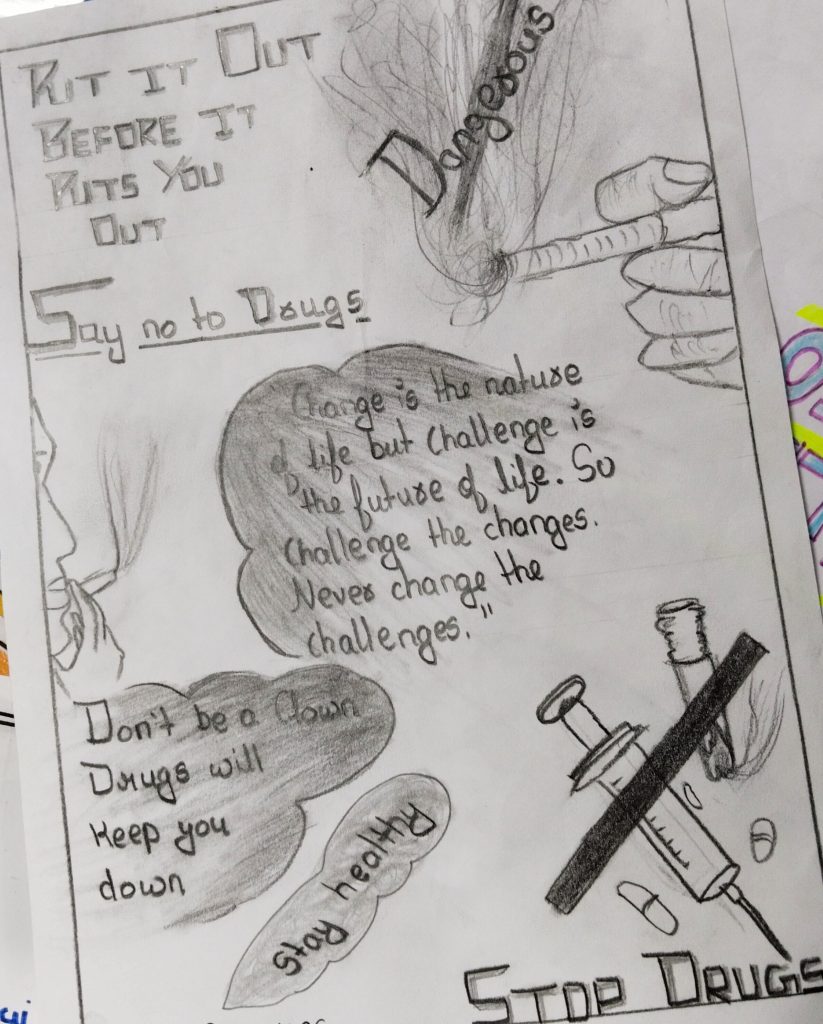 PUT IT OUT
BEFORE IT
PUTS YOU
OUT
Dangerous
Say no to Drugs
Change is the nature
of life but Challenge is
the future of life. So
Challenge the changes.
Never change the
challenges."
Don't be a Clown
Drugs will
keep you
down
Stay healthy
STOP DRUGS